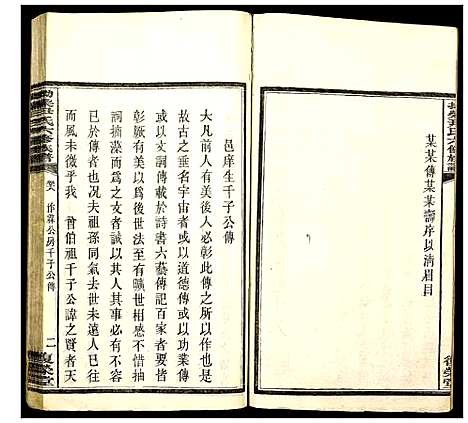 某某傳某某壽序以清眉目
復榮堂
邑庠生千子公傳
大凡前人有美後人必彰此傳之所以作也
古之垂名宇宙者或以道德傳或以功業傳
或以著述傳於詩書六藝傳記百家者要皆
彰厥有美以爲後世法至有曠世相感不惜抽
詞摛藻而爲之文者誠以其人其事必有不
已於傳者也夫祖孫同氣去世未遠人已往
而風未微乎我　曾伯祖千子公諱之賢者天
氏六修族譜
卷八
作霖公房千子公傳
二
復榮堂